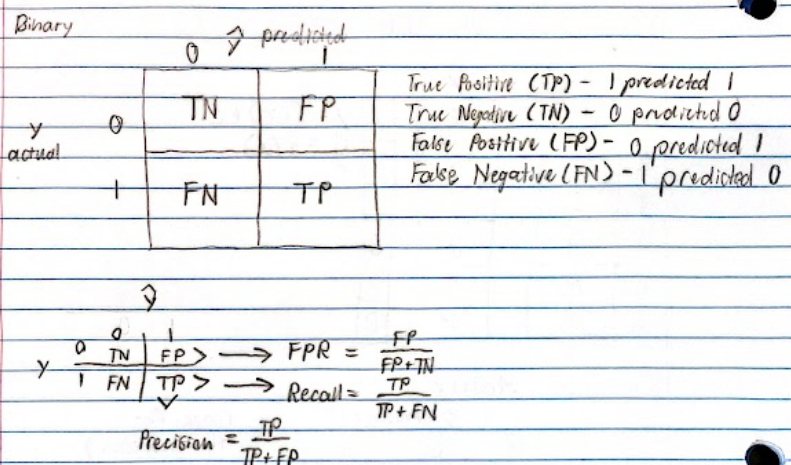 Binary
ŷ predicted
0 1
TN FP
y actual 0
1 FN TP
True Positive (TP) - 1 predicted 1
True Negative (TN) - 0 predicted 0
False Positive (FP) - 0 predicted 1
False Negative (FN) - 1 predicted 0
ŷ
0 1
y 0 TN FP > → FPR = FP / FP+TN
1 FN TP > → Recall = TP / TP + FN
Precision = TP / TP+FP